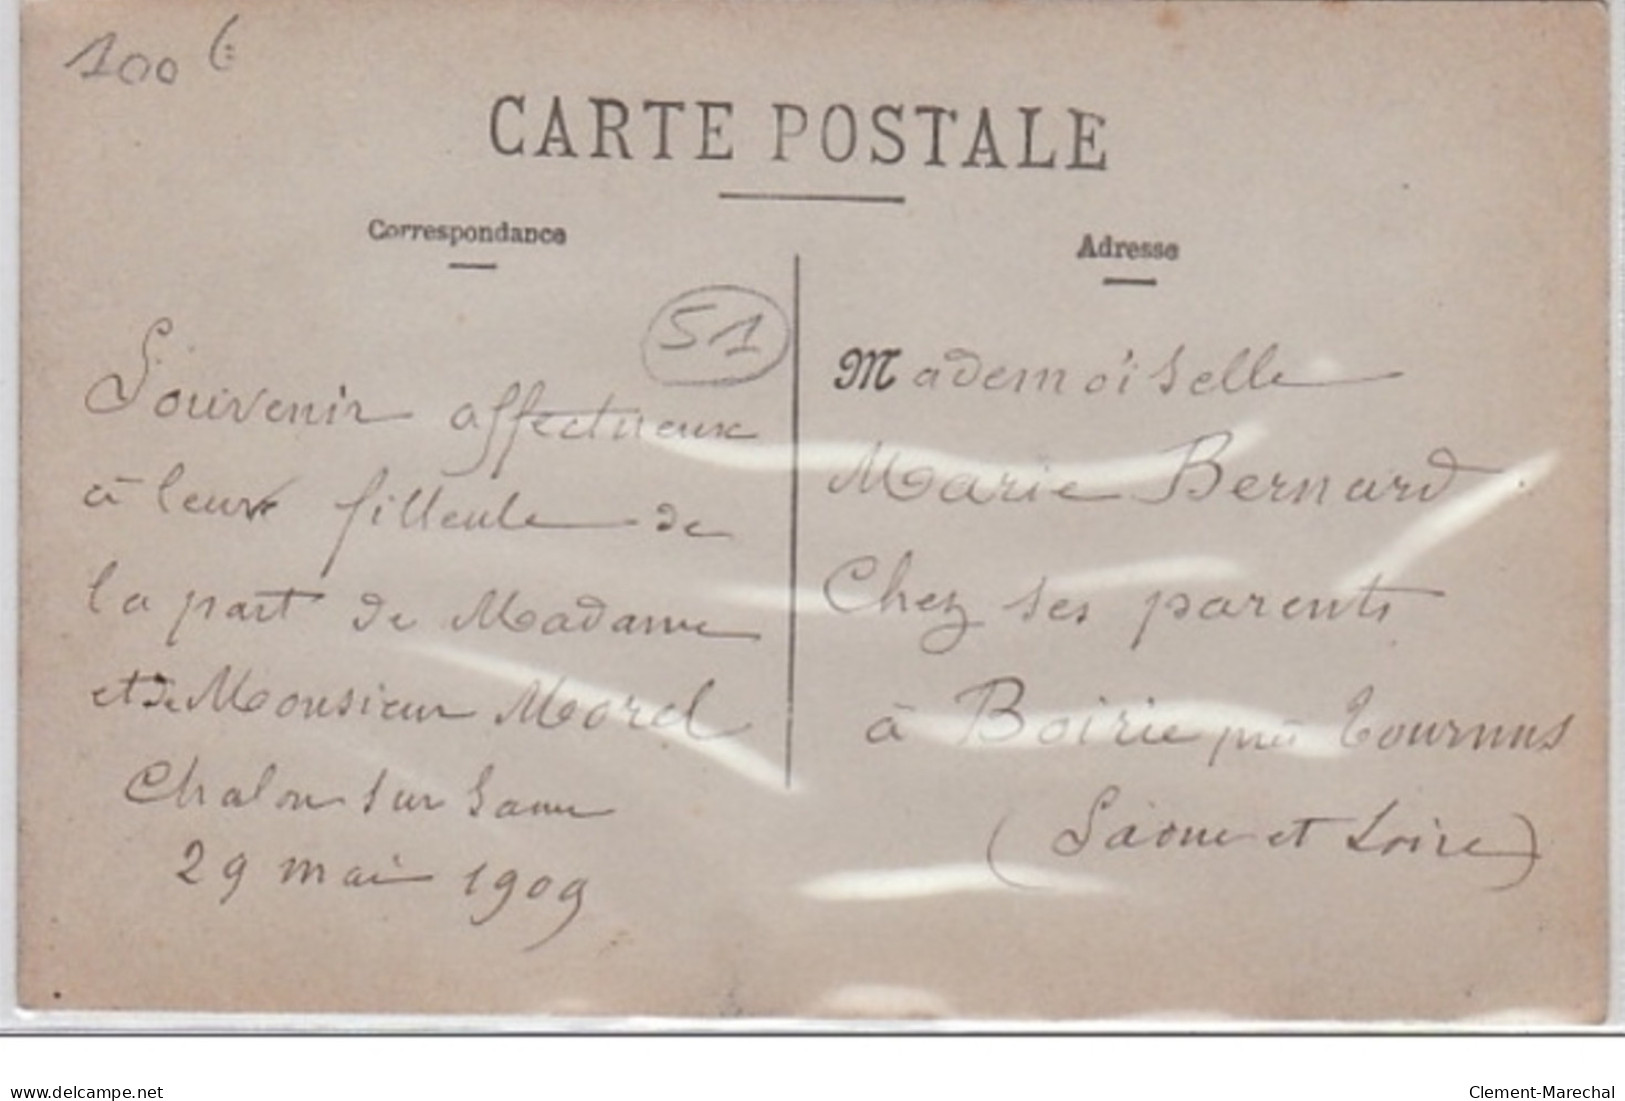 100 €
CARTE POSTALE
Correspondance
Adresse
51
Souvenir affectueux
à leur filleule de
la part de Madame
et de Monsieur Morel
Chalon sur Saone
29 mai 1909
Mademoiselle
Marie Bernard
Chez ses parents
à Boirie près Tournus
(Saone et Loire)
www.delcampe.net
Clement-Marechal